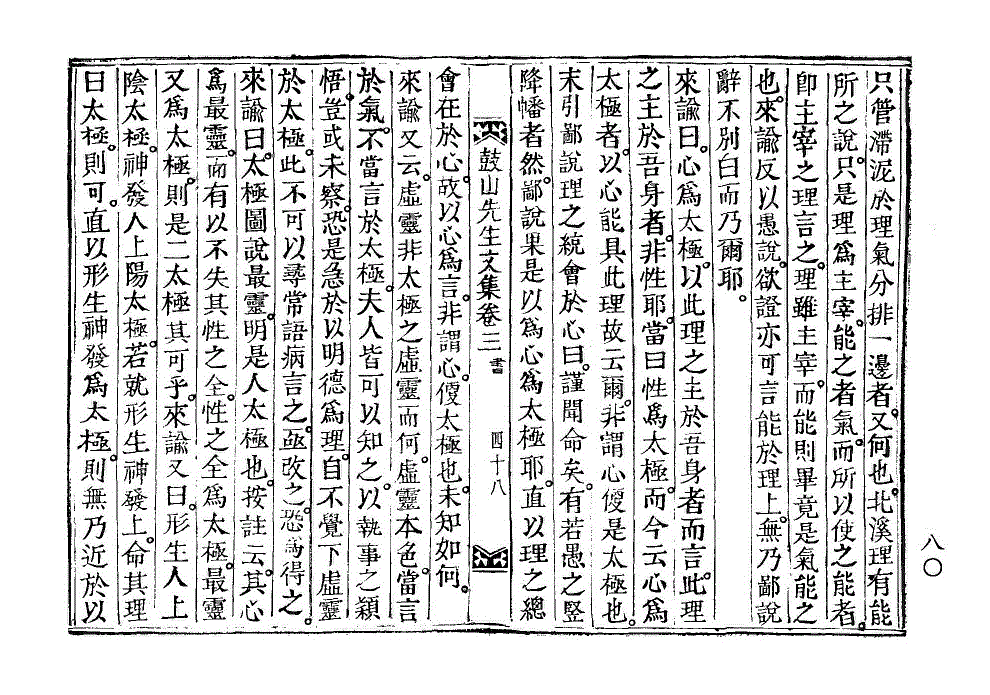 只管滯泥於理氣分排一邊者。又何也。北溪理有能
所之說。只是理爲主宰。能之者氣。而所以使之能者。
卽主宰之理言之。理雖主宰。而能則畢竟是氣能之
也。來諭反以愚說。欲證亦可言能於理上。無乃鄙說
辭不別白而乃爾耶。
來諭曰。心爲太極。以此理之主於吾身者而言。此理
之主於吾身者。非性耶。當曰性爲太極。而今云心爲
太極者。以心能具此理故云爾。非謂心便是太極也。
末引鄙說理之統會於心曰。謹聞命矣。有若愚之竪
降幡者然。鄙說果是以爲心爲太極耶。直以理之總
鼓山先生文集卷三 書 四十八
會在於心。故以心爲言。非謂心便太極也。未知如何。
來諭又云。虛靈非太極之虛靈而何。虛靈本色。當言
於氣。不當言於太極。夫人皆可以知之。以執事之穎
悟。豈或未察。恐是急於以明德爲理。自不覺下虛靈
於太極。此不可以尋常語病言之。亟改之。恐爲得之。
來諭曰。太極圖說最靈。明是人太極也。按註云。其心
爲最靈。而有以不失其性之全。性之全爲太極。最靈
又爲太極。則是二太極其可乎。來諭又曰。形生人上
陰太極。神發人上陽太極。若就形生神發上。命其理
曰太極。則可。直以形生神發爲太極。則無乃近於以
八〇